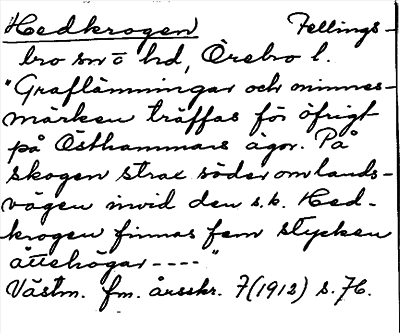 Hedkrogen Fellings-
bro sn o hd, Örebro l.
"Graflämningar och minnes-
märken träffas för öfrigt
på Östhammars ägor. På
skogen strax söder om lands-
vägen invid den s.k. Hed-
krogen finnas fem stycken
ättehögar ----"
Västm. fm. årsskr. 7(1912) s. 76.